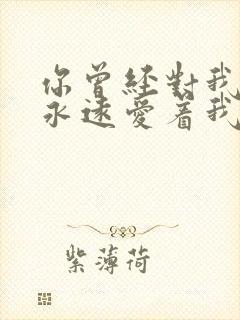 你曾經對我
永遠愛着我
紫薄荷